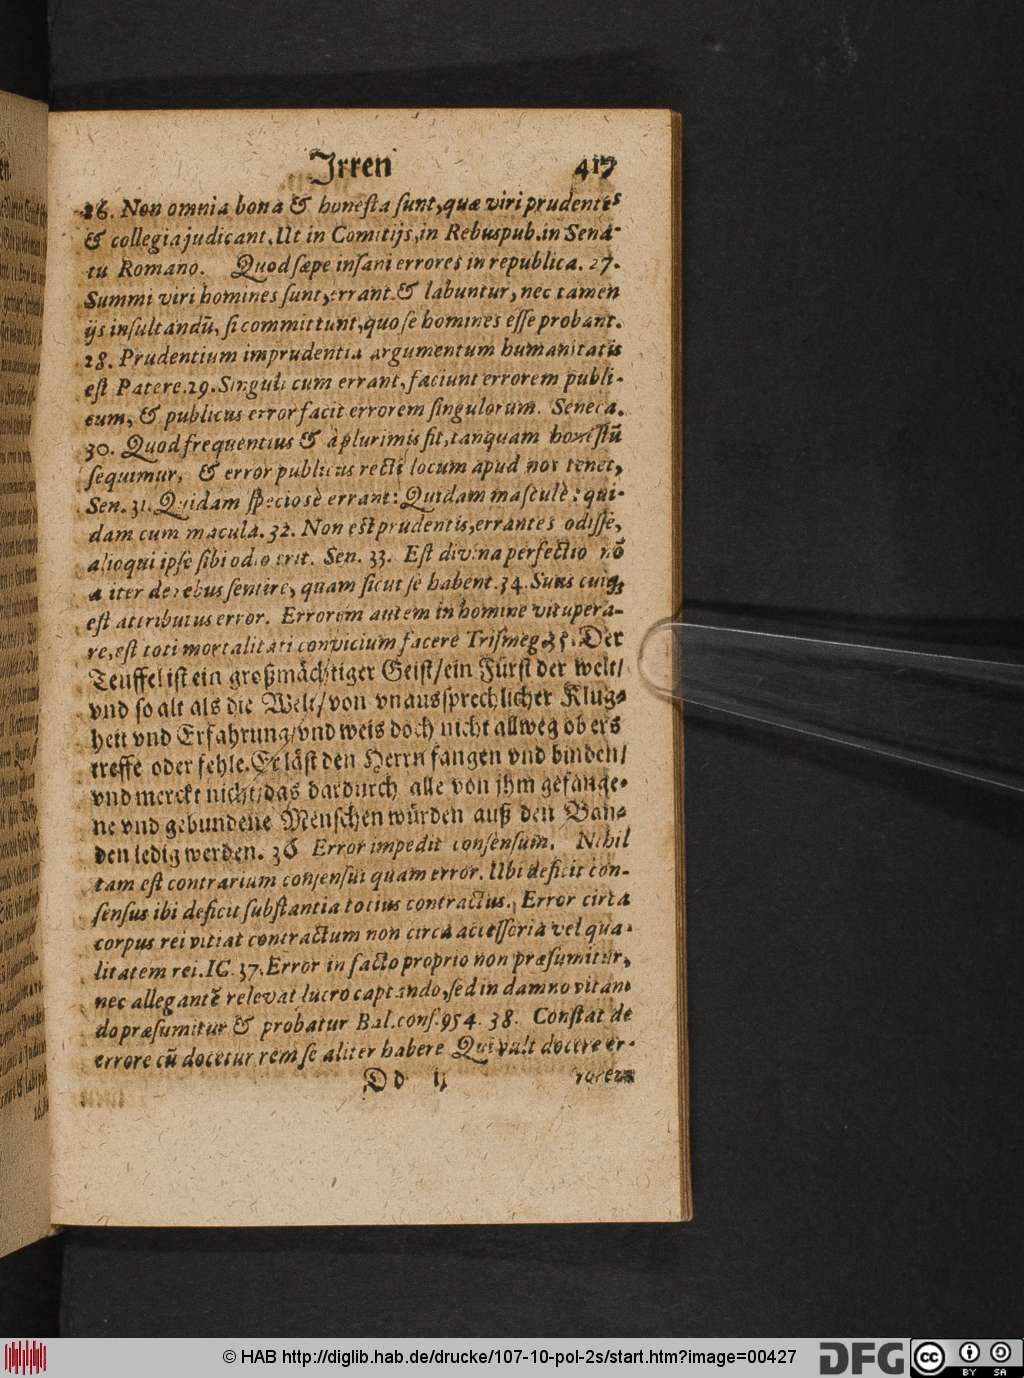 Irren 417
26. Non omnia bona & honesta sunt, quæ viri prudentes
& collegia judicant. Ut in Comitijs, in Rebuspub. in Sena-
tu Romano. Quod sæpe insani errores in republica. 27.
Summi viri homines sunt, errant & labuntur, nec tamen
ijs insultandū, si committunt, quo se homines esse probant.
28. Prudentium imprudentia argumentum humanitatis
est Patere. 29. Singuli cum errant, faciunt errorem publi-
cum, & publicus error facit errorem singulorum. Seneca.
30. Quod frequentius & à plurimis fit, tanquam honestū
sequimur, & error publicus recti locum apud nos tenet,
Sen. 31. Quidam speciosè errant: Quidam masculè: qui-
dam cum macula. 32. Non est prudentis, errantes odisse,
alioqui ipse sibi odio erit. Sen. 33. Est divina perfectio nō
aliter de rebus sentire, quam sicut se habent. 34. Suus cuiq;
est attributus error. Errorem autem in homine vitupera-
re, est toti mortalitati convicium facere Trismeg 35. Der
Teuffel ist ein großmächtiger Geist/ein Fürst der welt/
vnd so alt als die Welt/von vnaussprechlicher Klug-
heit vnd Erfahrung/vnd weis doch nicht allweg ob ers
treffe oder fehle. Er läst den Herrn fangen vnd binden/
vnd merckt nicht/das dardurch alle von jhm gefange-
ne vnd gebundene Menschen würden auß den Ban-
den ledig werden. 36 Error impedit consensum. Nihil
tam est contrarium consensui quam error. Ubi deficit con-
sensus ibi deficit substantia totius contractus. Error circa
corpus rei vitiat contractum non circa accessoria vel qua-
litatem rei. IC. 37. Error in facto proprio non præsumitur,
nec allegantē relevat lucro captando, sed in damno vitan-
do præsumitur & probatur Bal. cons. 954. 38. Constat de
errore cū docetur rem se aliter habere Qui vult docere er-
Dd ij rorem
© HAB http://diglib.hab.de/drucke/107-10-pol-2s/start.htm?image=00427
DFG
cc BY SA